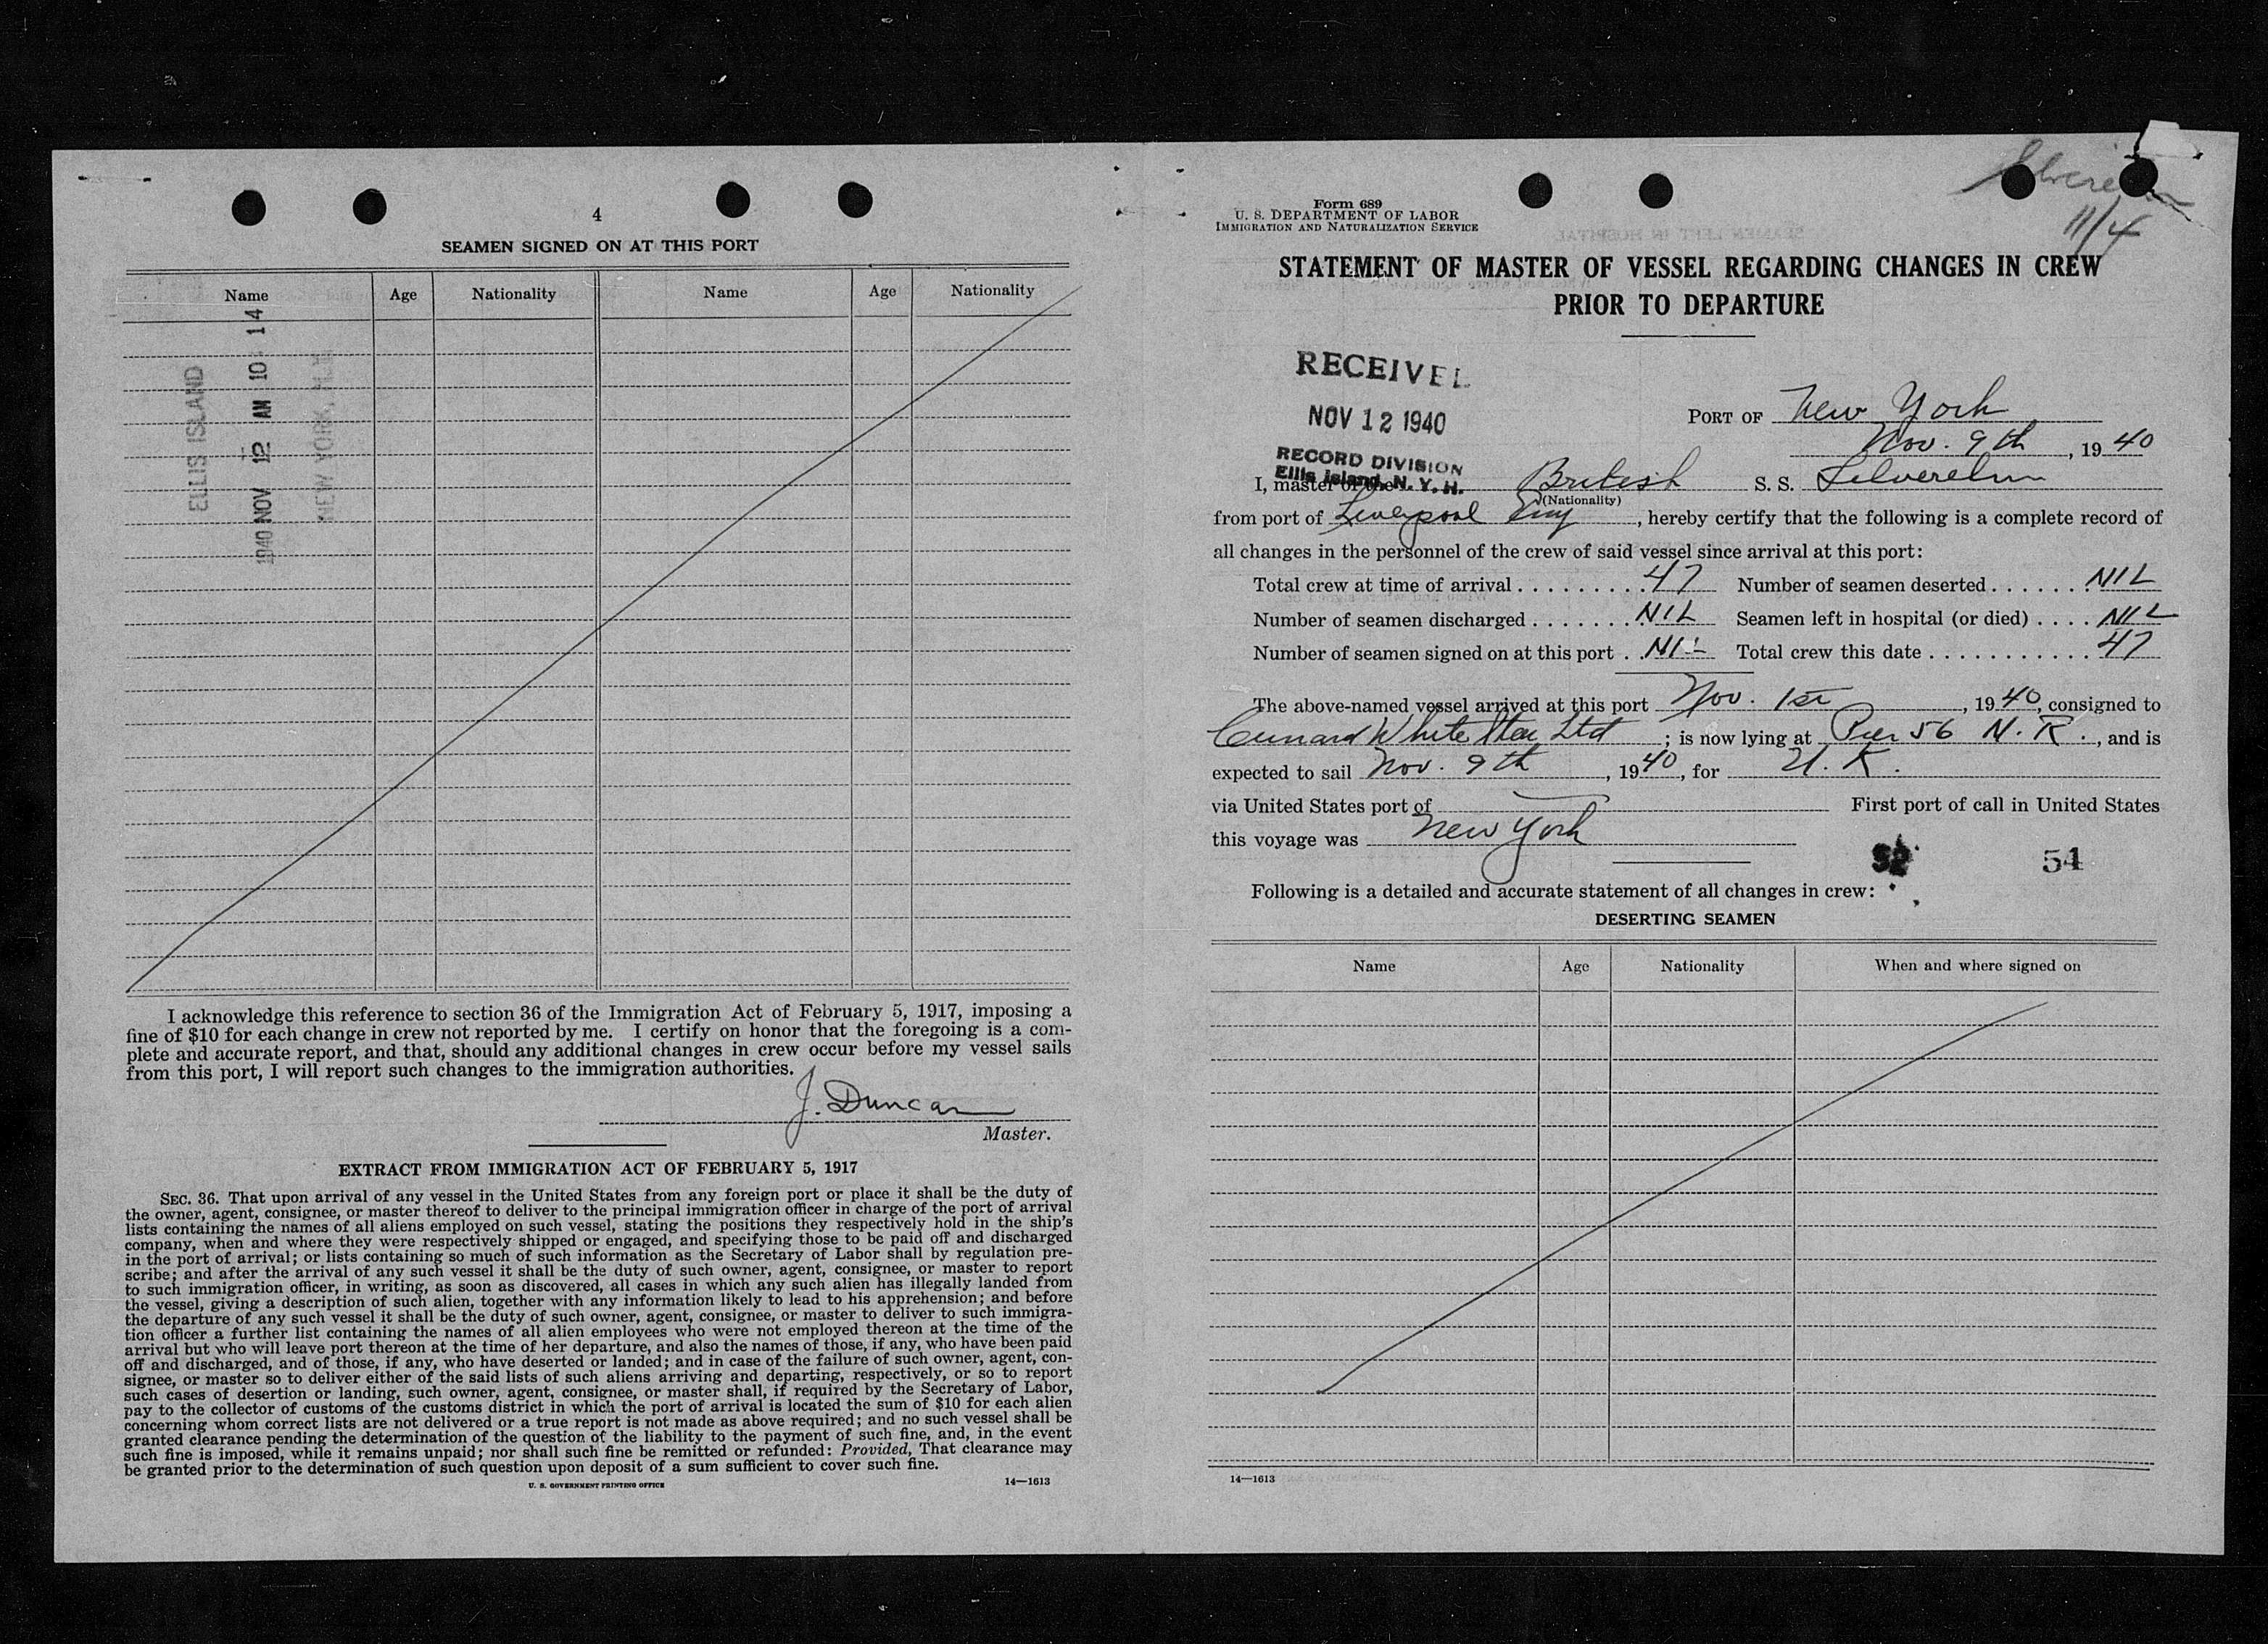 4
SEAMEN SIGNED ON AT THIS PORT
Name Age Nationality Name Age Nationality
ELLIS ISLAND
1940 NOV 12 AM 10 14
NEW YORK, N.Y.
I acknowledge this reference to section 36 of the Immigration Act of February 5, 1917, imposing a
fine of $10 for each change in crew not reported by me. I certify on honor that the foregoing is a com-
plete and accurate report, and that, should any additional changes in crew occur before my vessel sails
from this port, I will report such changes to the immigration authorities.
J. Duncan
Master.
EXTRACT FROM IMMIGRATION ACT OF FEBRUARY 5, 1917
SEC. 36. That upon arrival of any vessel in the United States from any foreign port or place it shall be the duty of
the owner, agent, consignee, or master thereof to deliver to the principal immigration officer in charge of the port of arrival
lists containing the names of all aliens employed on such vessel, stating the positions they respectively hold in the ship's
company, when and where they were respectively shipped or engaged, and specifying those to be paid off and discharged
in the port of arrival; or lists containing so much of such information as the Secretary of Labor shall by regulation pre-
scribe; and after the arrival of any such vessel it shall be the duty of such owner, agent, consignee, or master to report
to such immigration officer, in writing, as soon as discovered, all cases in which any such alien has illegally landed from
the vessel, giving a description of such alien, together with any information likely to lead to his apprehension; and before
the departure of any such vessel it shall be the duty of such owner, agent, consignee, or master to deliver to such immigra-
tion officer a further list containing the names of all alien employees who were not employed thereon at the time of the
arrival but who will leave port thereon at the time of her departure, and also the names of those, if any, who have been paid
off and discharged, and of those, if any, who have deserted or landed; and in case of the failure of such owner, agent, con-
signee, or master so to deliver either of the said lists of such aliens arriving and departing, respectively, or so to report
such cases of desertion or landing, such owner, agent, consignee, or master shall, if required by the Secretary of Labor,
pay to the collector of customs of the customs district in which the port of arrival is located the sum of $10 for each alien
concerning whom correct lists are not delivered or a true report is not made as above required; and no such vessel shall be
granted clearance pending the determination of the question of the liability to the payment of such fine, and, in the event
such fine is imposed, while it remains unpaid; nor shall such fine be remitted or refunded: Provided, That clearance may
be granted prior to the determination of such question upon deposit of a sum sufficient to cover such fine.
U. S. GOVERNMENT PRINTING OFFICE 14—1613
Form 689
U. S. DEPARTMENT OF LABOR
IMMIGRATION AND NATURALIZATION SERVICE
11/4
STATEMENT OF MASTER OF VESSEL REGARDING CHANGES IN CREW
PRIOR TO DEPARTURE
RECEIVED
NOV 12 1940
RECORD DIVISION
Ellis Island, N. Y. H.
PORT OF New York
Nov. 9th, 1940
I, master of the British S. S. Silverelm
(Nationality)
from port of Liverpool Eng, hereby certify that the following is a complete record of
all changes in the personnel of the crew of said vessel since arrival at this port:
Total crew at time of arrival . . . . . . . . . 47 Number of seamen deserted . . . . . . . NIL
Number of seamen discharged . . . . . . . NIL Seamen left in hospital (or died) . . . . NIL
Number of seamen signed on at this port . . NIL Total crew this date . . . . . . . . . . . . 47
The above-named vessel arrived at this port Nov. 1st, 1940, consigned to
Cunard White Star Ltd; is now lying at Pier 56 N. R., and is
expected to sail Nov. 9th, 1940, for U. K.
via United States port of — First port of call in United States
this voyage was New York
54
Following is a detailed and accurate statement of all changes in crew:
DESERTING SEAMEN
Name Age Nationality When and where signed on
14—1613